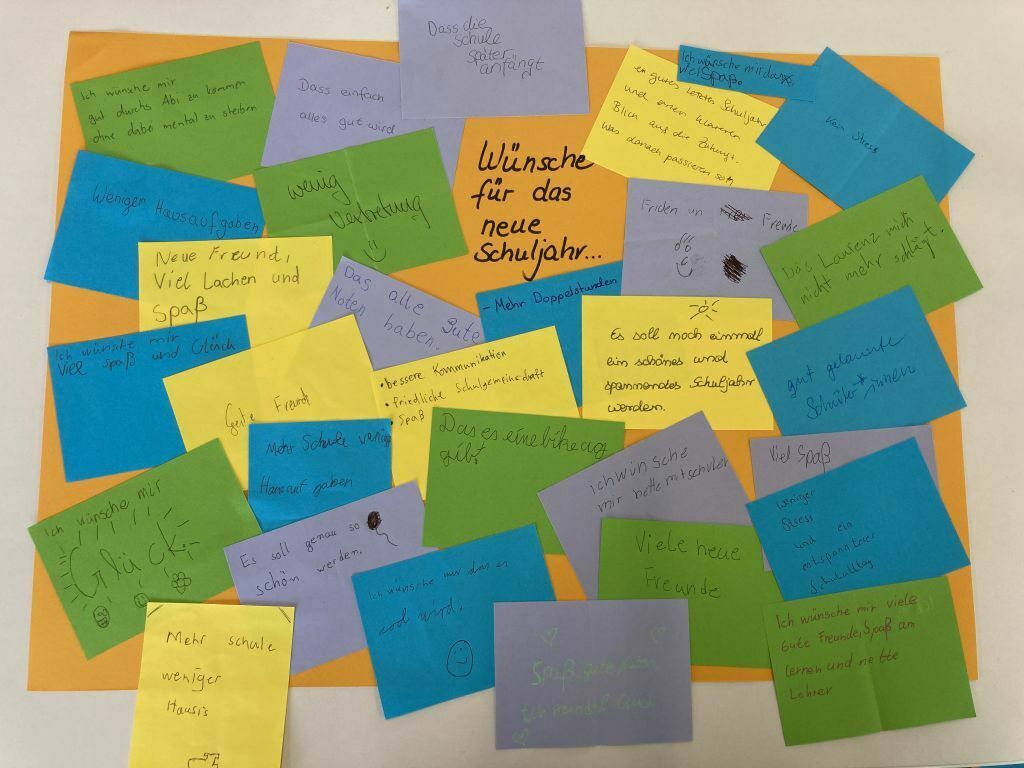 Dass die
Schule
später
anfängt
Ich wünsche mir
gut durchs Abi zu kommen
ohne dabei mental zu sterben
Dass einfach
alles gut wird
ein gutes letztes Schuljahr
und einen klareren
Blick auf die Zukunft.
Was danach passieren soll
Ich wünsche mir das
viel Spaß.
kein Stress
Wünsche
für das
neue
Schuljahr...
Weniger Hausaufgaben
wenig
Vertretung
Friden un Freude
Das Lausenz mich
nicht mehr schlägt.
Neue Freund,
Viel Lachen und
Spaß
Das alle Gute
Noten haben.
- Mehr Doppelstunden
Es soll noch einmall
ein schönes und
spannendes Schuljahr
werden.
gut gelaunte
Schüler*innen
Ich wünsche mir
viel spaß und Glück
Gute Freund
• bessere Kommunikation
• friedliche Schulgemeinschaft
• Spaß
Mehr Schule wenig
Hausaufgaben
Das es eine bike ag
gibt
ich wünsche
mir nette mitschüler
Viel Spaß
weniger
Stress
und ein
entspannter
Schulalltag
Ich wünsche mir
Glück
Es soll genau so
schön werden.
Ich wünsche mir das es
cool wird.
Viele neue
Freunde
Mehr schule
weniger
Hausis
Spaß, gute Noten
Glück
Ich wünsche mir viele
Gute Freunde, Spaß am
lernen und nette
Lehrer